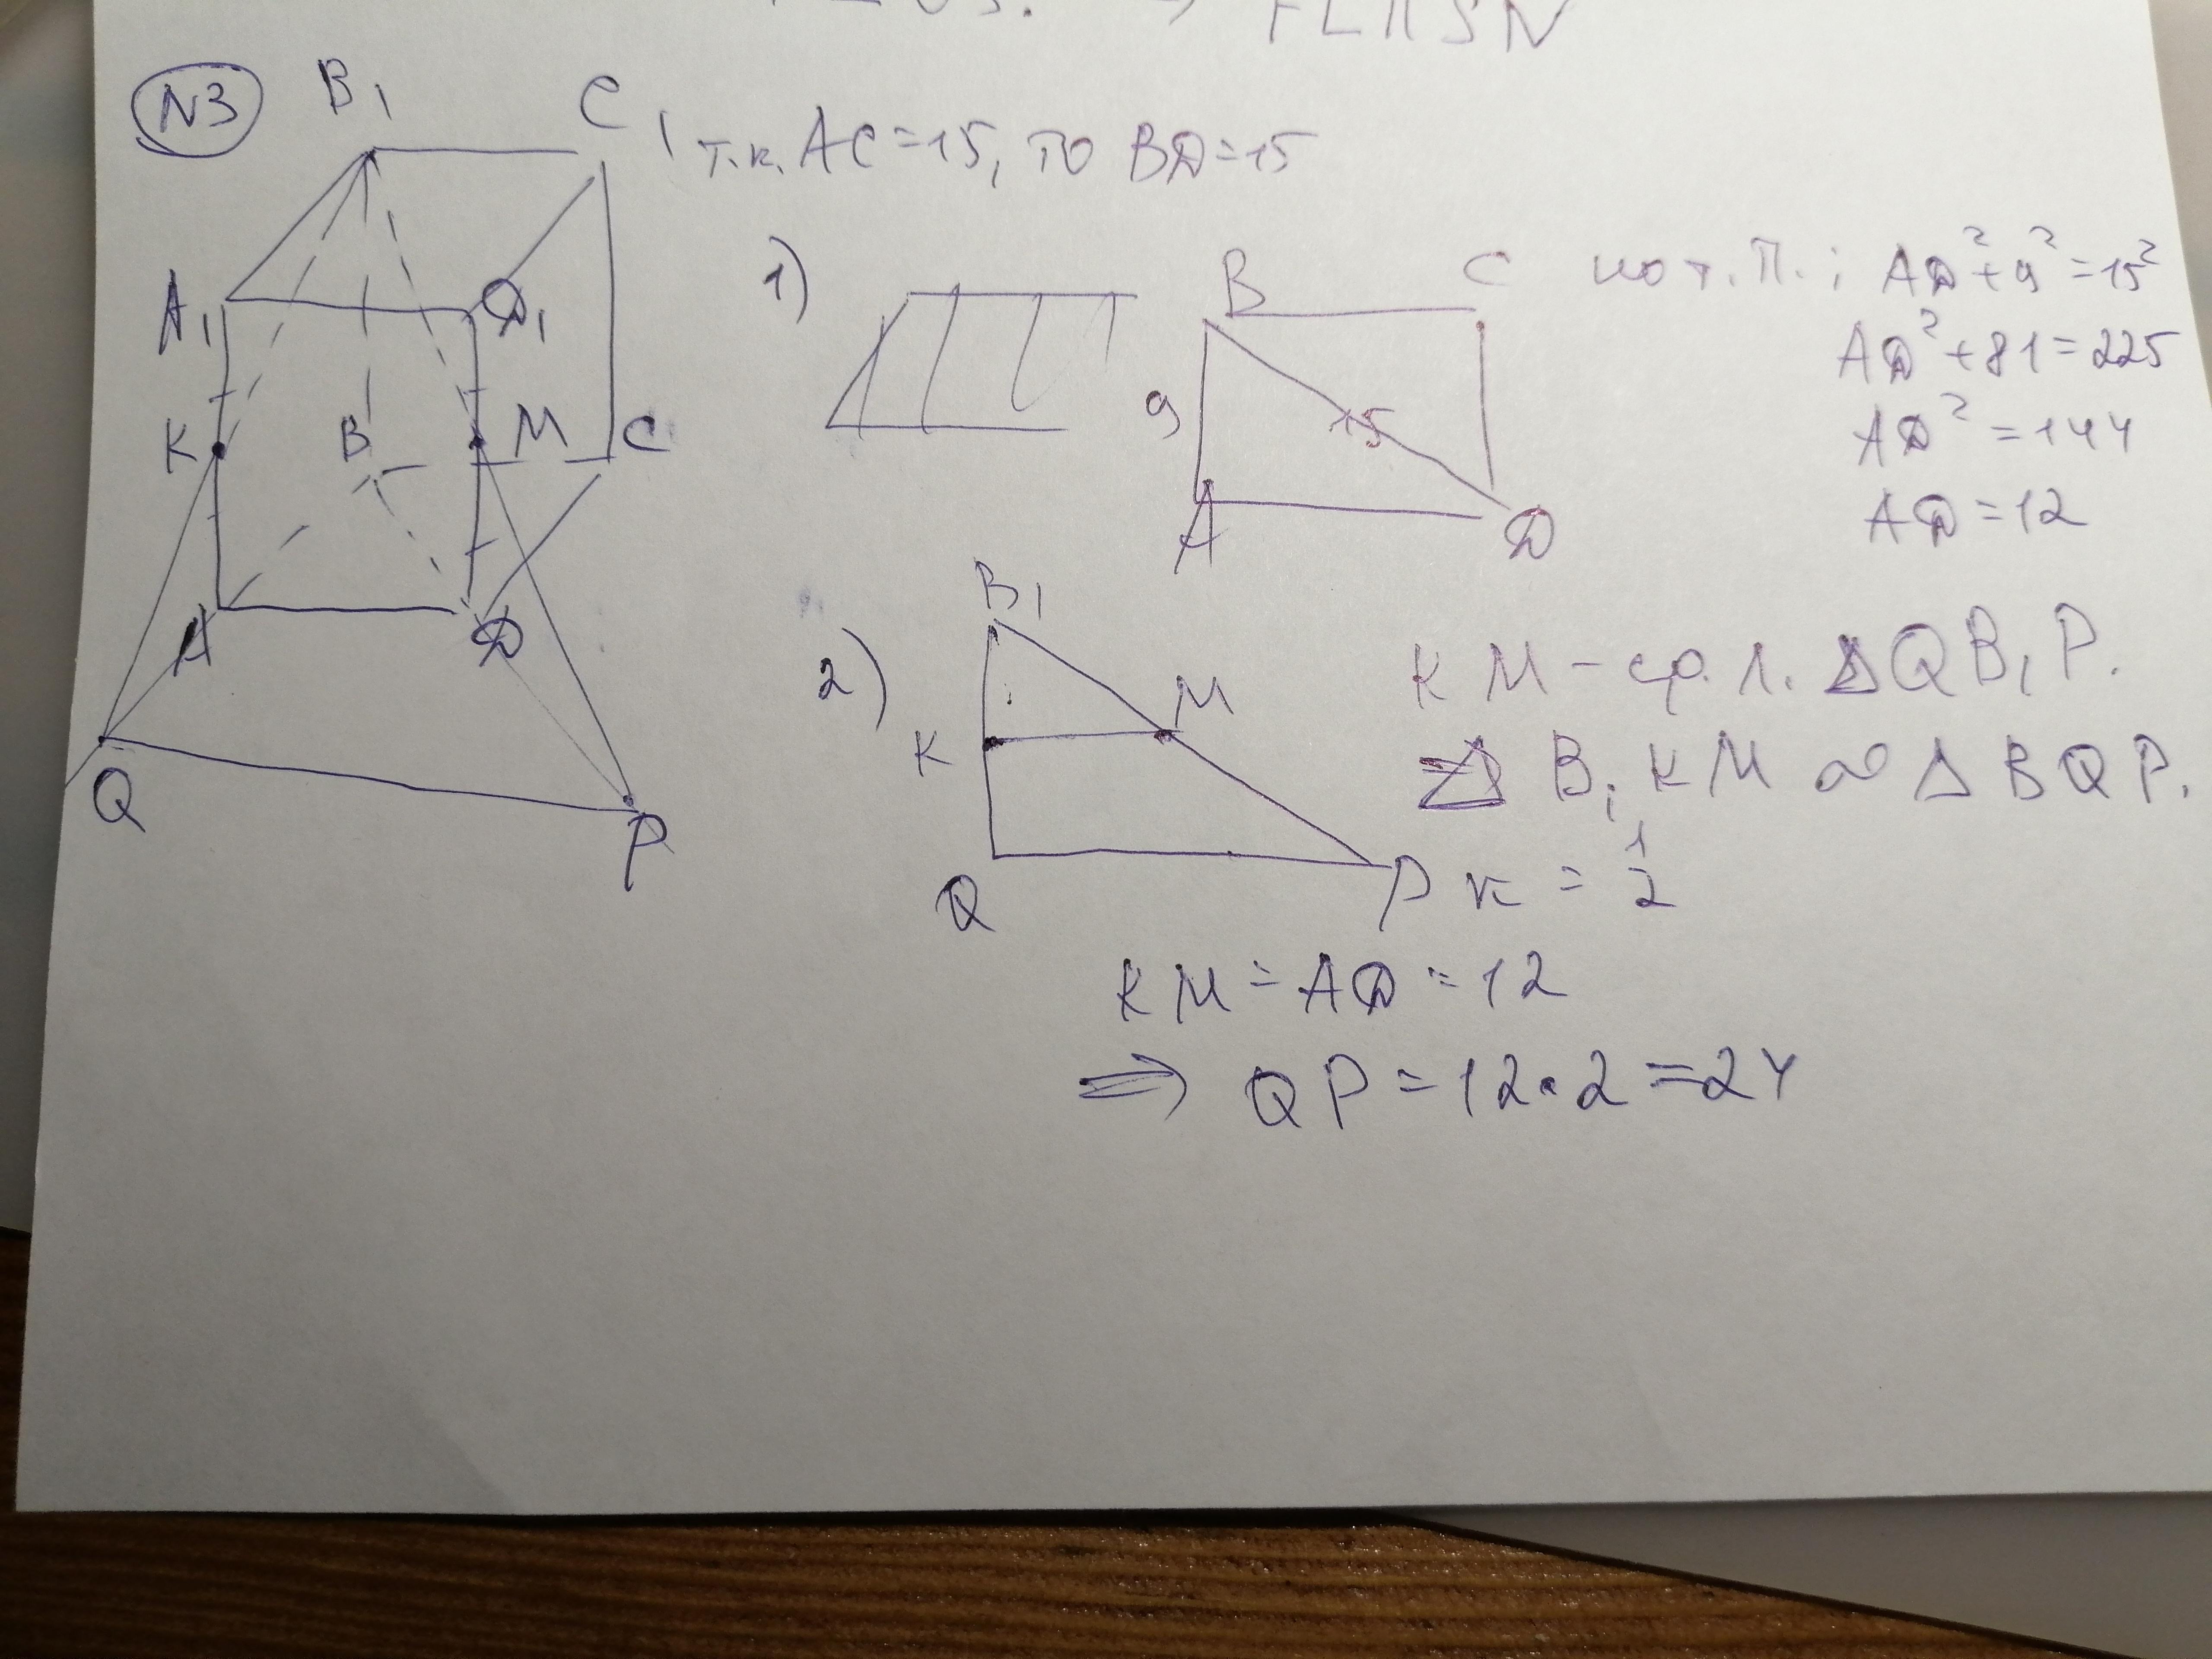 → FLKSN
N3
B1
C1
т.к. AC=15, то BD=15
A1
D1
K
B
M
C
A
D
Q
P
1)
B
C
9
15
A
D
по т. П.: AD²+9²=15²
AD²+81=225
AD²=144
AD=12
2)
B1
M
K
Q
P
KM - ср. л. ΔQB1P.
⇒ Δ B1KM ∾ Δ BQP.
к = 1/2
KM = AD = 12
⇒ QP = 12·2=24